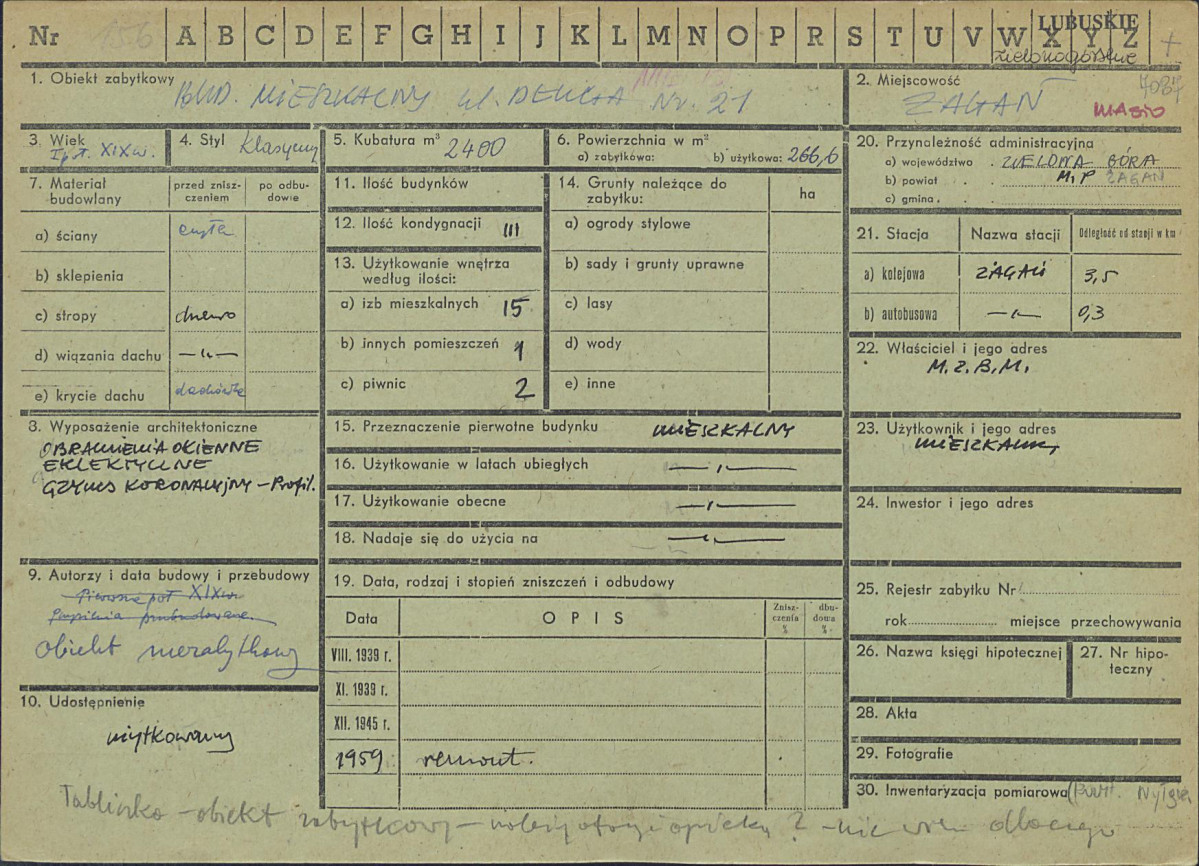 Nr 156 A B C D E F G H I J K L M N O P R S T U V W X Y Z
LUBUSKIE
zielonogórskie
1. Obiekt zabytkowy
BUD. MIESZKALNY ul. Nr. 21
2. Miejscowość
7087
ŻAGAŃ
MIASTO
3. Wiek
I poł. XIX w.
4. Styl Klasyczny
5. Kubatura m³ 2400
6. Powierzchnia w m²
a) zabytkowa: b) użytkowa: 266,6
7. Materiał budowlany
przed zniszczeniem
po odbudowie
a) ściany cegła
b) sklepienia
c) stropy drewno
d) wiązania dachu —〃—
e) krycie dachu dachówka
8. Wyposażenie architektoniczne
OBRAMIENIA OKIENNE
EKLEKTYCZNE
GZYMS KORONACYJNY – Profil.
9. Autorzy i data budowy i przebudowy
Pierwsza poł XIX w
przebudowana
obiekt niezabytkowy
10. Udostępnienie
użytkowany
11. Ilość budynków
12. Ilość kondygnacji III
13. Użytkowanie wnętrza
według ilości:
a) izb mieszkalnych 15
b) innych pomieszczeń 1
c) piwnic 2
14. Grunty należące do
zabytku:
ha
a) ogrody stylowe
b) sady i grunty uprawne
c) lasy
d) wody
e) inne
15. Przeznaczenie pierwotne budynku MIESZKALNY
16. Użytkowanie w latach ubiegłych —〃—
17. Użytkowanie obecne —〃—
18. Nadaje się do użycia na —〃—
19. Data, rodzaj i stopień zniszczeń i odbudowy
Data
OPIS
Zniszczenia %
dbudowa %
VIII. 1939 r.
XI. 1939 r.
XII. 1945 r.
1959 remont.
20. Przynależność administracyjna
a) województwo ZIELONA GÓRA
b) powiat M.P ŻAGAŃ
c) gmina
21. Stacja
Nazwa stacji
Odległość od stacji w km
a) kolejowa ŻAGAŃ 3,5
b) autobusowa —〃— 0,3
22. Właściciel i jego adres
M.Z.B.M.
23. Użytkownik i jego adres
24. Inwestor i jego adres
25. Rejestr zabytku Nr
rok miejsce przechowywania
26. Nazwa księgi hipotecznej
27. Nr hipoteczny
28. Akta
29. Fotografie
30. Inwentaryzacja pomiarowa
Tabliczka – obiekt zabytkowy – ? – nie wiem dlaczego